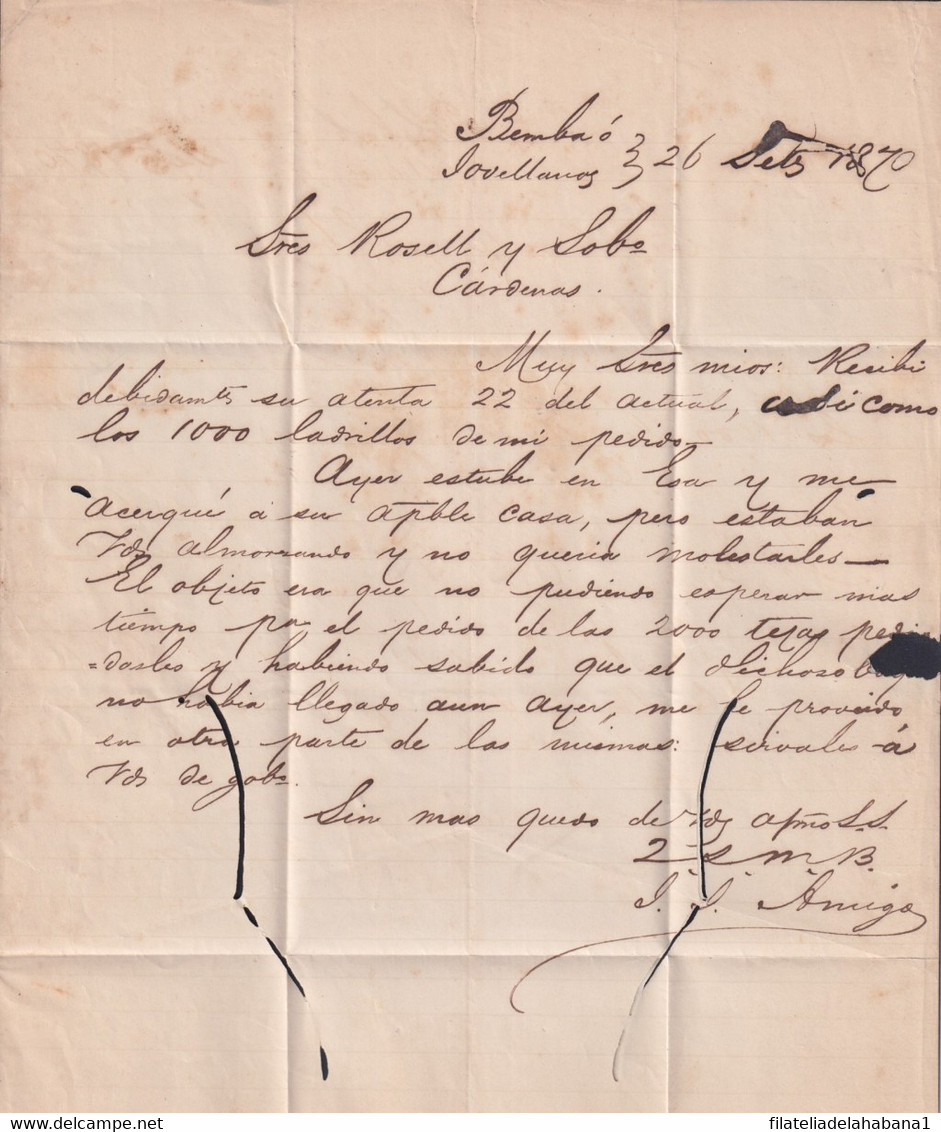 Bemba ó
Jovellanos } 26 Sete 1870
Sres Rosell y Sobo
Cárdenas.
Muy Sres mios: Recibi
debidamte su atenta 22 del actual, asi como
los 1000 ladrillos de mi pedido—
Ayer estube en Esa y me
acerqué á su apble casa, pero estaban
Vds almorzando y no queria molestarles—
El objeto era que no pudiendo esperar mas
tiempo pa el pedido de las 2000 tejas
=dasles y habiendo sabido que el dichoso
no habia llegado aun ayer, me he proveido
en otra parte de las mismas: sirvales á
Vds de gobo.
Sin mas quedo de Vds afmo S.S.
Q. S. M. B.
J. J. Amigo
filateliadelahabana1